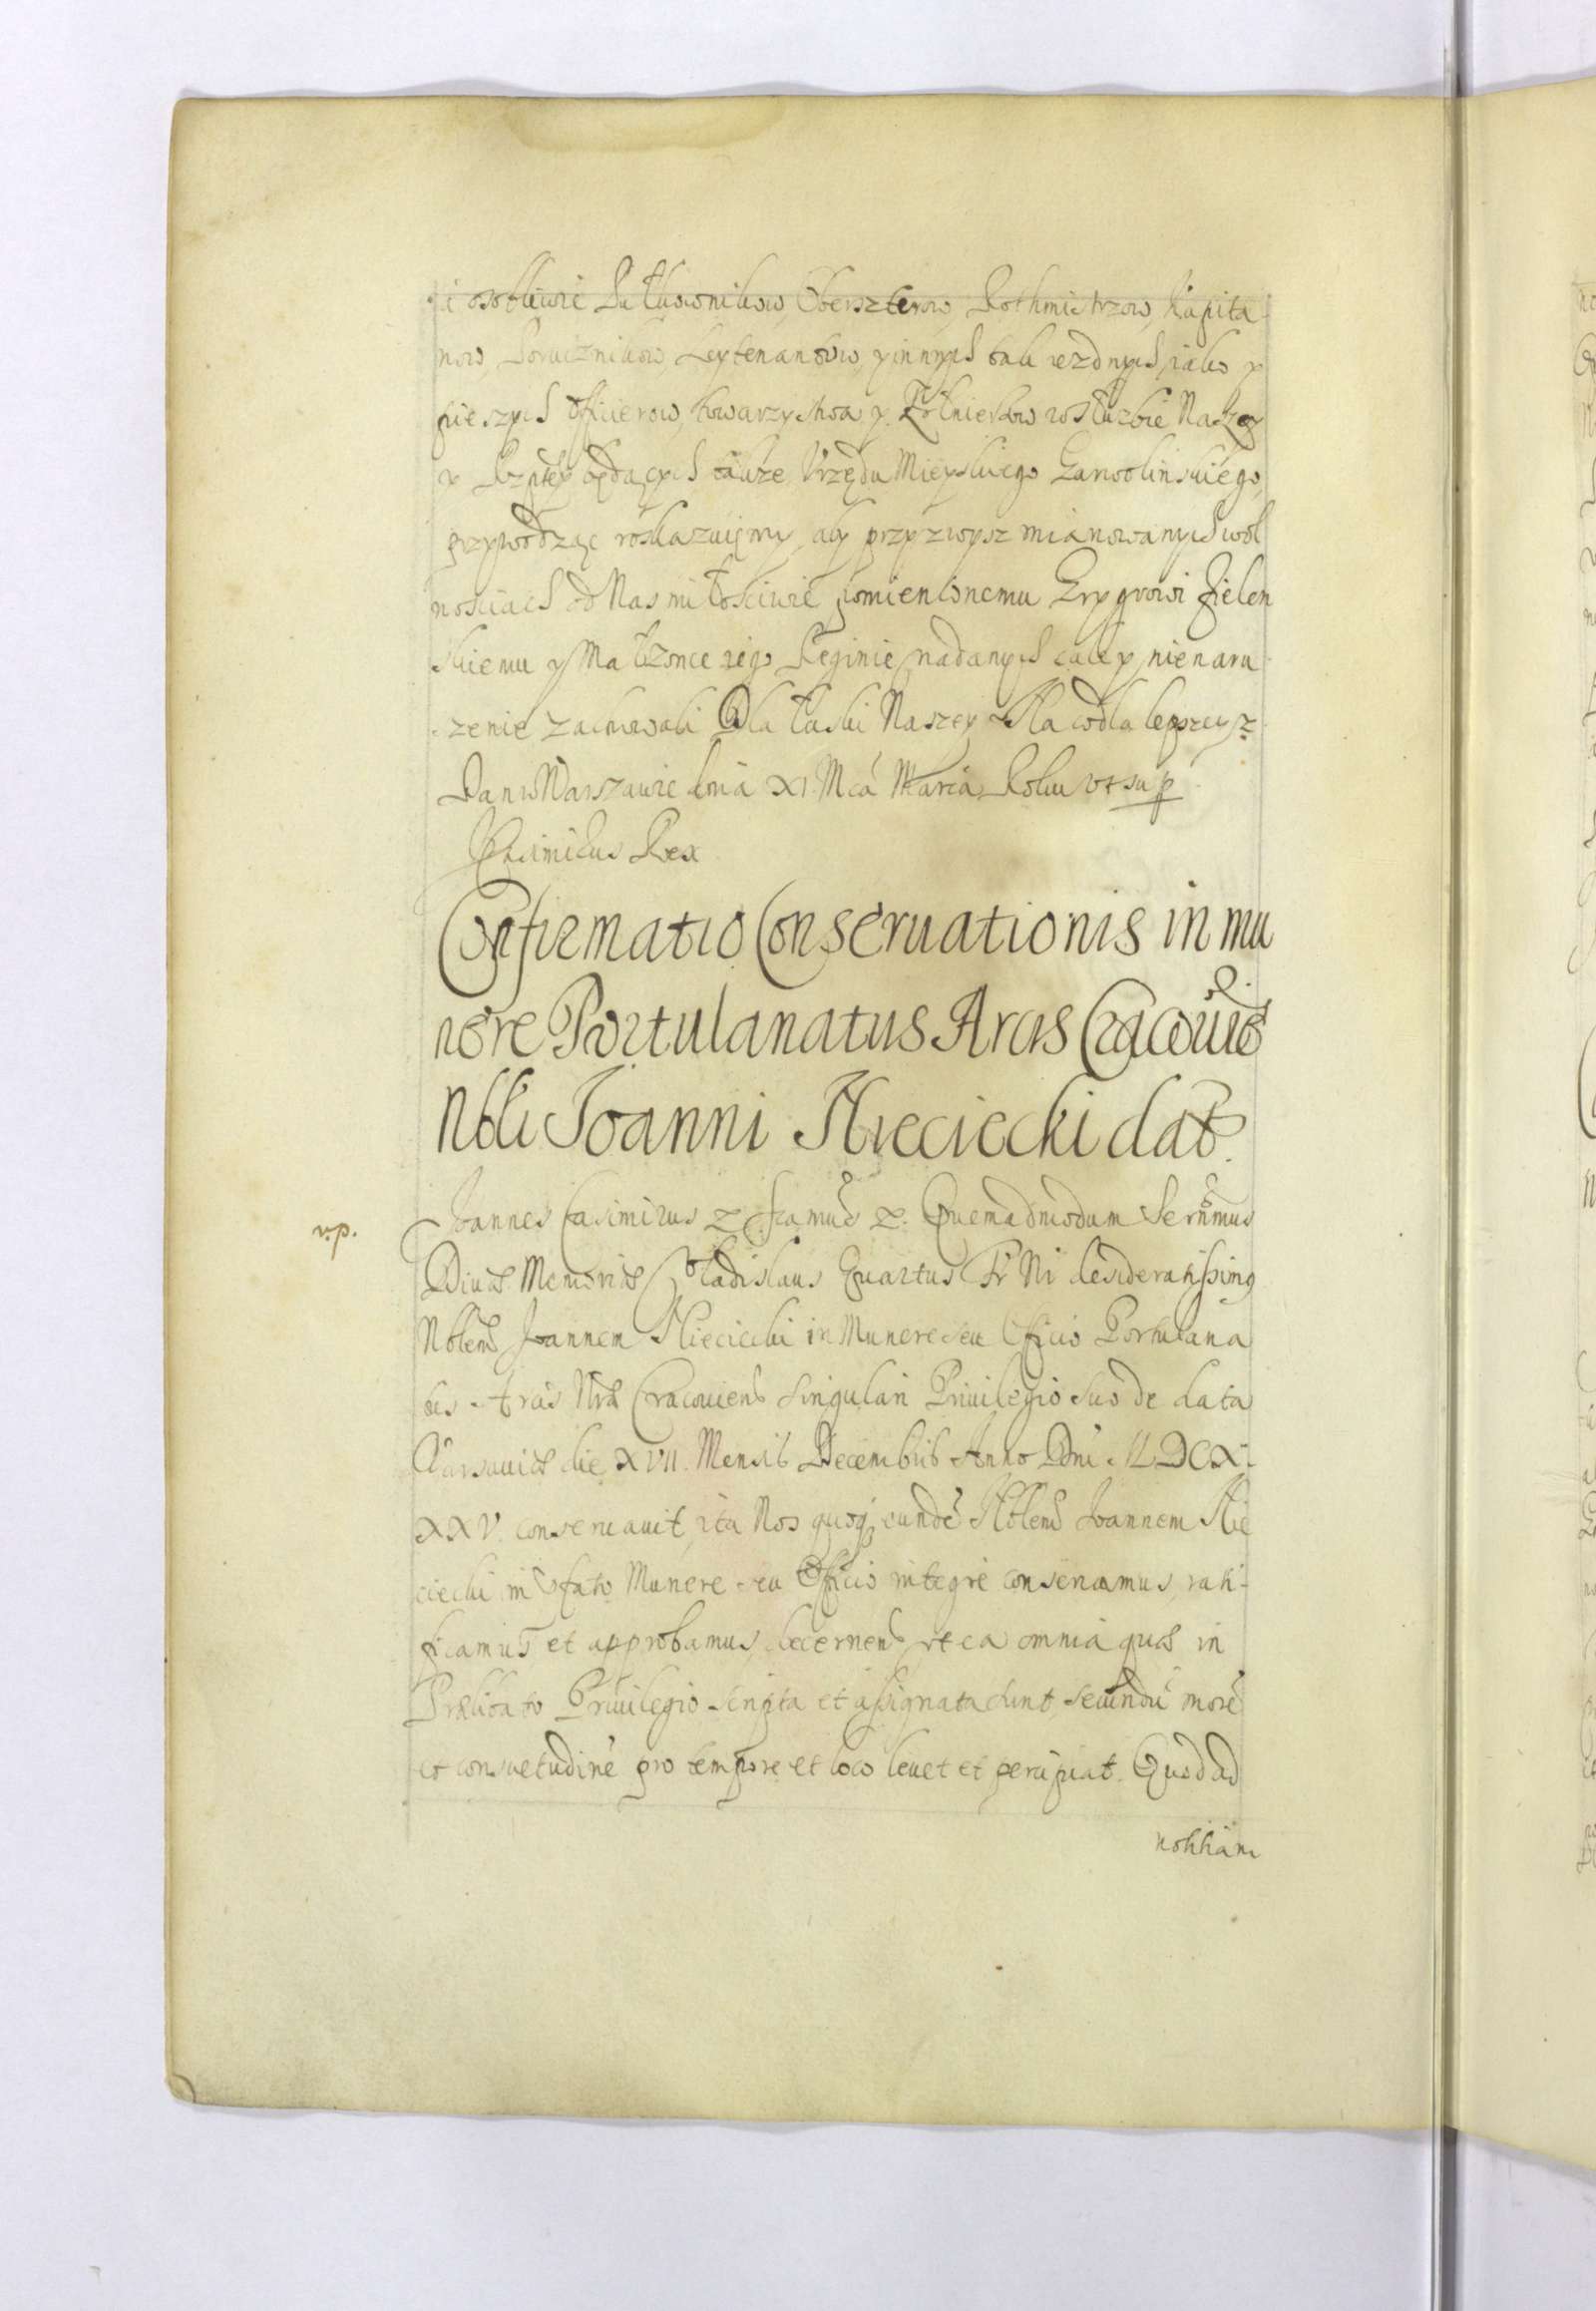 i osobliwie Pułkownikow, Oberszterow, Rothmistrzow, Kapita-
now Porucznikow, Leytenantow, y innych tak iezdnych, iako y
pieszych Officierow, towarzystwa y Żołnierzow w służbie Naszey
y Rzptey będących, także Vrzędu Mieyskiego Garwolinskiego,
przywodząc roskazuięmy, aby przy zwysz mianowanych wol
nosciach od Nas miłościwie pomienionemu Gryg
skiemu y Małzonce iego Reginie, nadanych cale y nienaru
szenie zachowali Dla łaski Naszey Dla lepszey
Dan w Warszawie dnia XI. Mca Marca, Roku vt sup
Casimirus Rex
Confirmatio Conseruationis in mu
nere Portulanatus Arcis Cracouien
Nbli Joanni Hieciecki dat.
v.p.
Joannes Casimirus & Quemadmodum Sernmus
Diuæ Memoriæ Vladislaus Quartus Fr Nr desideratissimg
Nblem Joannem Hieciecki in Munere seu Officio Portulana
tus Arcis Nræ Cracouiens singulari Priuilegio suo de data
Varsauiæ die XVII. Mensis Decembris Anno Dni MDCX-
XXV. conseruauit, ita Nos quoq eundē Nblem Joannem Hie
ciecki in pfato Munere seu Officio integrè conseruamus, rati-
ficamus et approbamus, decernens vt ea omnia quæ in
Prælibato Priuilegio scripta et assignata sunt, secundū morē
et consuetudinē pro tempore et loco leuet et percipiat. Quod ad
notitiam